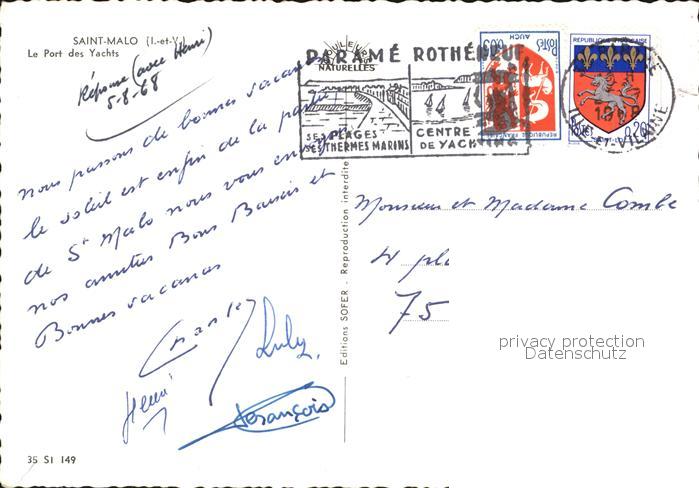 SAINT-MALO (I.-et-V.)
Le Port des Yachts
Réponse (avec Henri)
5-8-68
nous passons de bonnes vacances
le soleil est enfin de la partie
de St Malo nous vous envoyons
nos amitiés Bons Baisers et
Bonnes vacances
Charles
Luly.
Henri
François
35 SI 149
Editions SOFER - Reproduction interdite
COULEURS
NATURELLES
PARAMÉ ROTHÉNEUF
SES PLAGES
SES THERMES MARINS
CENTRE
DE YACH
POSTES
0,05
AUCH
REPUBLIQUE FRANÇAISE
REPUBLIQUE FRANÇAISE
0,20
ILLE-ET-VILAINE
Monsieur et Madame Combe
4 pl
75
privacy protection
Datenschutz